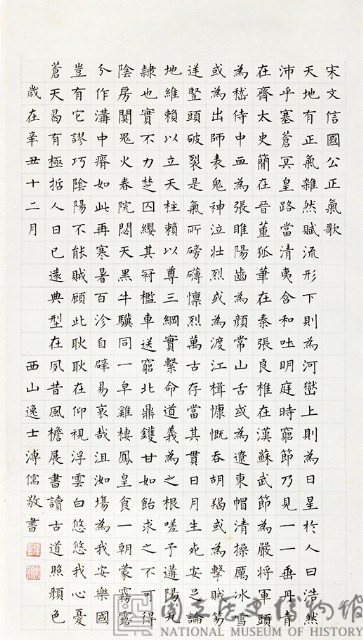 宋文信國公正氣歌
天地有正氣雜然賦流形下則為河嶽上則為日星於人曰浩然
沛乎塞蒼冥皇路當清夷含和吐明庭時窮節乃見一一垂丹青
在齊太史簡在晉董狐筆在秦張良椎在漢蘇武節為嚴將軍頭
為嵇侍中血為張睢陽齒為顏常山舌或為遼東帽清操厲冰雪
或為出師表鬼神泣壯烈或為渡江楫慷慨吞胡羯或為擊賊笏
逆豎頭破裂是氣所磅礴凜烈萬古存當其貫日月生死安足論
地維賴以立天柱賴以尊三綱實繫命道義為之根嗟予遘陽九
隸也實不力楚囚纓其冠檻車送窮北鼎鑊甘如飴求之不可得
陰房闃鬼火春院閟天黑牛驥同一皁雞棲鳳皇食一朝蒙霧露
分作溝中瘠如此再寒暑百沴自辟易哀哉沮洳場為我安樂國
豈有它謬巧陰陽不能賊顧此耿耿在仰視浮雲白悠悠我心憂
蒼天曷有極哲人日已遠典型在夙昔風檐展書讀古道照顏色
歲在辛丑十二月 西山逸士溥儒敬書
國立歷史博物館
NATIONAL MUSEUM OF HISTORY